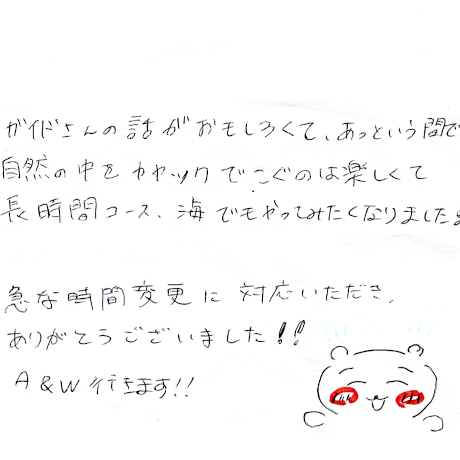 ガイドさんの話がおもしろくて、あっという間で
自然の中をカヤックでこぐのは楽しくて
長時間コース、海でもやってみたくなりました。
急な時間変更に対応いただき、
ありがとうございました!!
A&W行きます!!